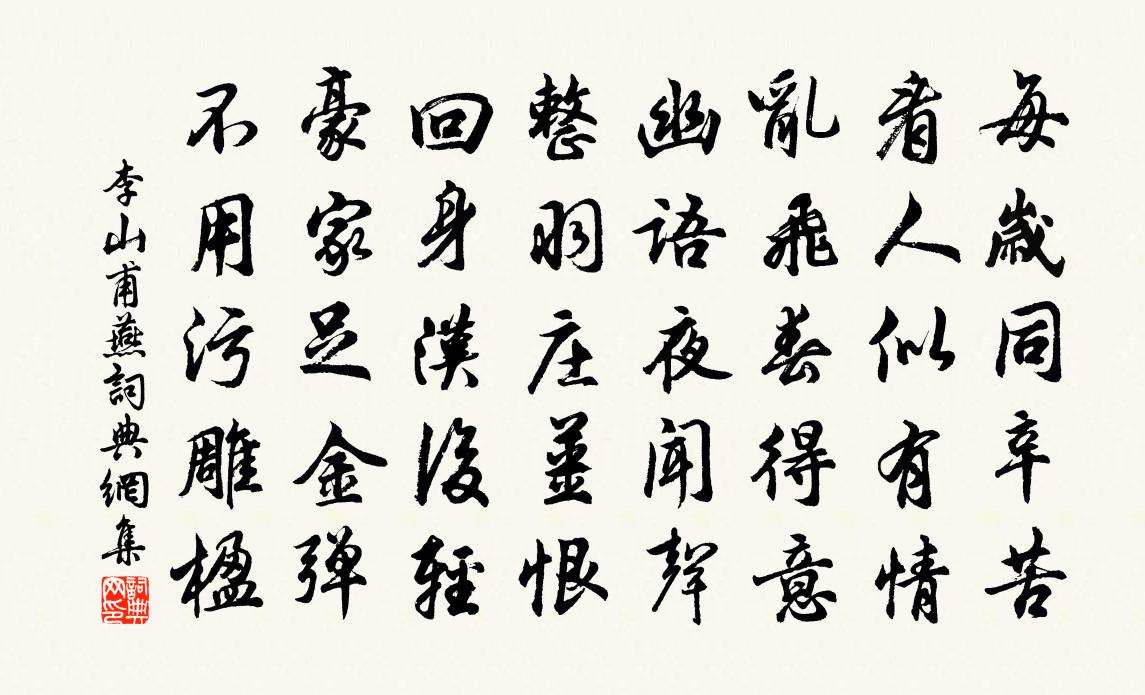 每歲同辛苦
看人似有情
亂飛春得意
幽語夜聞聲
整羽庄薑恨
回身漢後輕
豪家足金弹
不用污雕楹
李山甫燕詞典網集
詞典网印